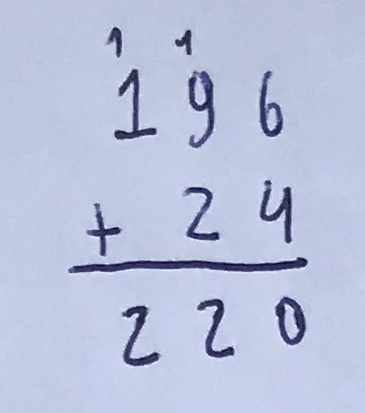 1 1
196
+ 24
220